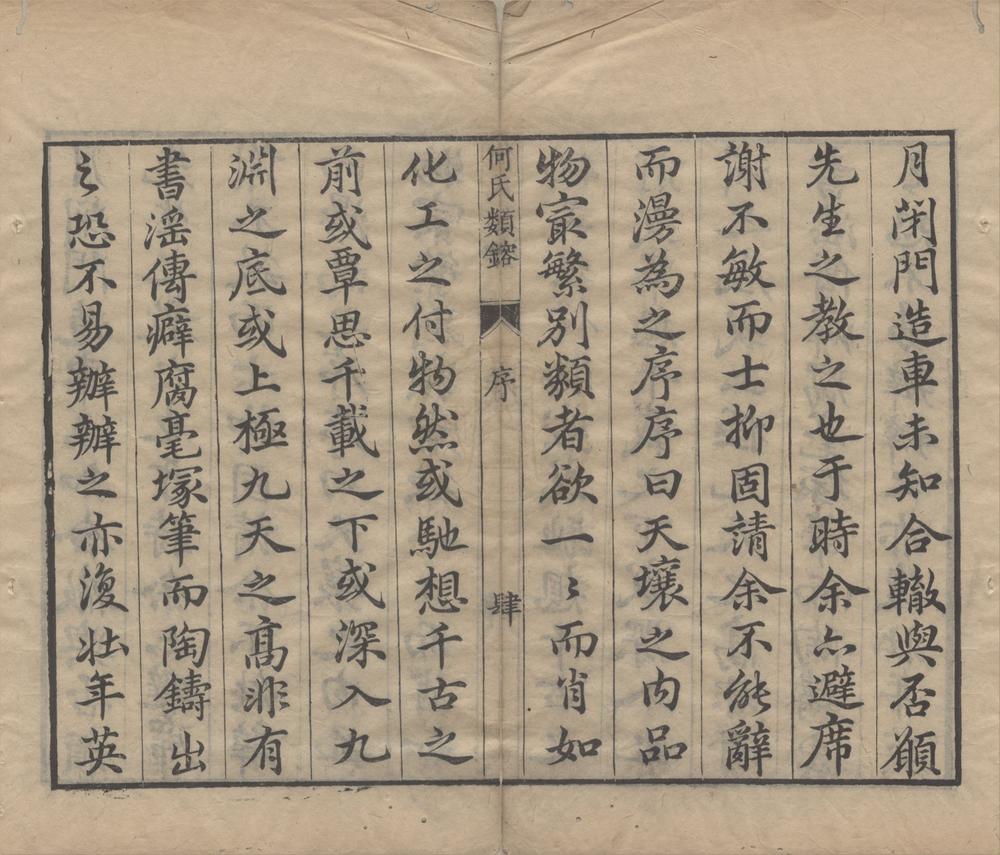 月閉門造車未知合轍與否願
先生之教之也于時余亦避席
謝不敏而士抑固請余不能辭
而漫為之序序曰天壤之內品
物寔繁別類者欲一〻而肖如
何氏類鎔 序 肆
化工之付物然或馳想千古之
前或覃思千載之下或深入九
淵之底或上極九天之高非有
書滛傳癖腐毫塚筆而陶鑄出
之恐不易辦辦之亦復壯年英